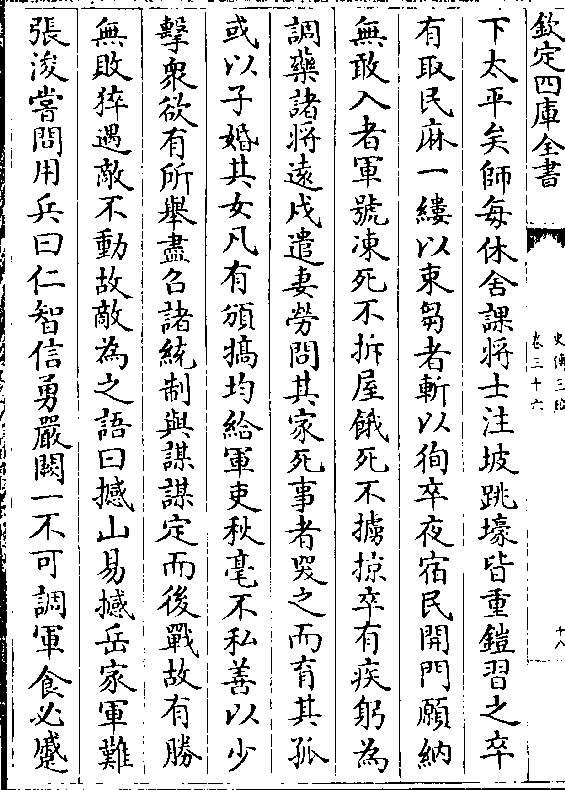 欽定四庫全書
史傳三編
卷三十六
十八
下太平矣師每休舍課將士注坡跳壕皆重鎧習之卒
有取民麻一縷以束芻者斬以徇卒夜宿民開門願納
無敢入者軍號凍死不拆屋餓死不擄掠卒有疾躬為
調藥諸將遠戍遣妻勞問其家死事者哭之而育其孤
或以子婚其女凡有頒犒均給軍吏秋毫不私善以少
擊衆欲有所舉盡召諸統制與謀謀定而後戰故有勝
無敗猝遇敵不動故敵為之語曰撼山易撼岳家軍難
張浚嘗問用兵曰仁智信勇嚴闕一不可調軍食必蹙